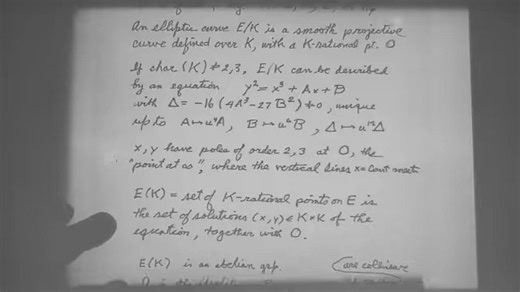 An elliptic curve E/K is a smooth projective
curve defined over K, with a K-rational pt. O
If char (K) ≠ 2,3, E/K can be described
by an equation y² = x³ + Ax + B
with Δ = -16 (4A³-27B²) ≠ 0, unique
up to A ↦ u⁴A, B ↦ u⁶B, Δ ↦ u¹²Δ
x, y have poles of order 2,3 at O, the
"point at ∞", where the vertical lines x = const meet
E(K) = set of K-rational points on E is
the set of solutions (x,y) ∈ K×K of the
equation, together with O.
E(K) is an abelian grp. (are collinear